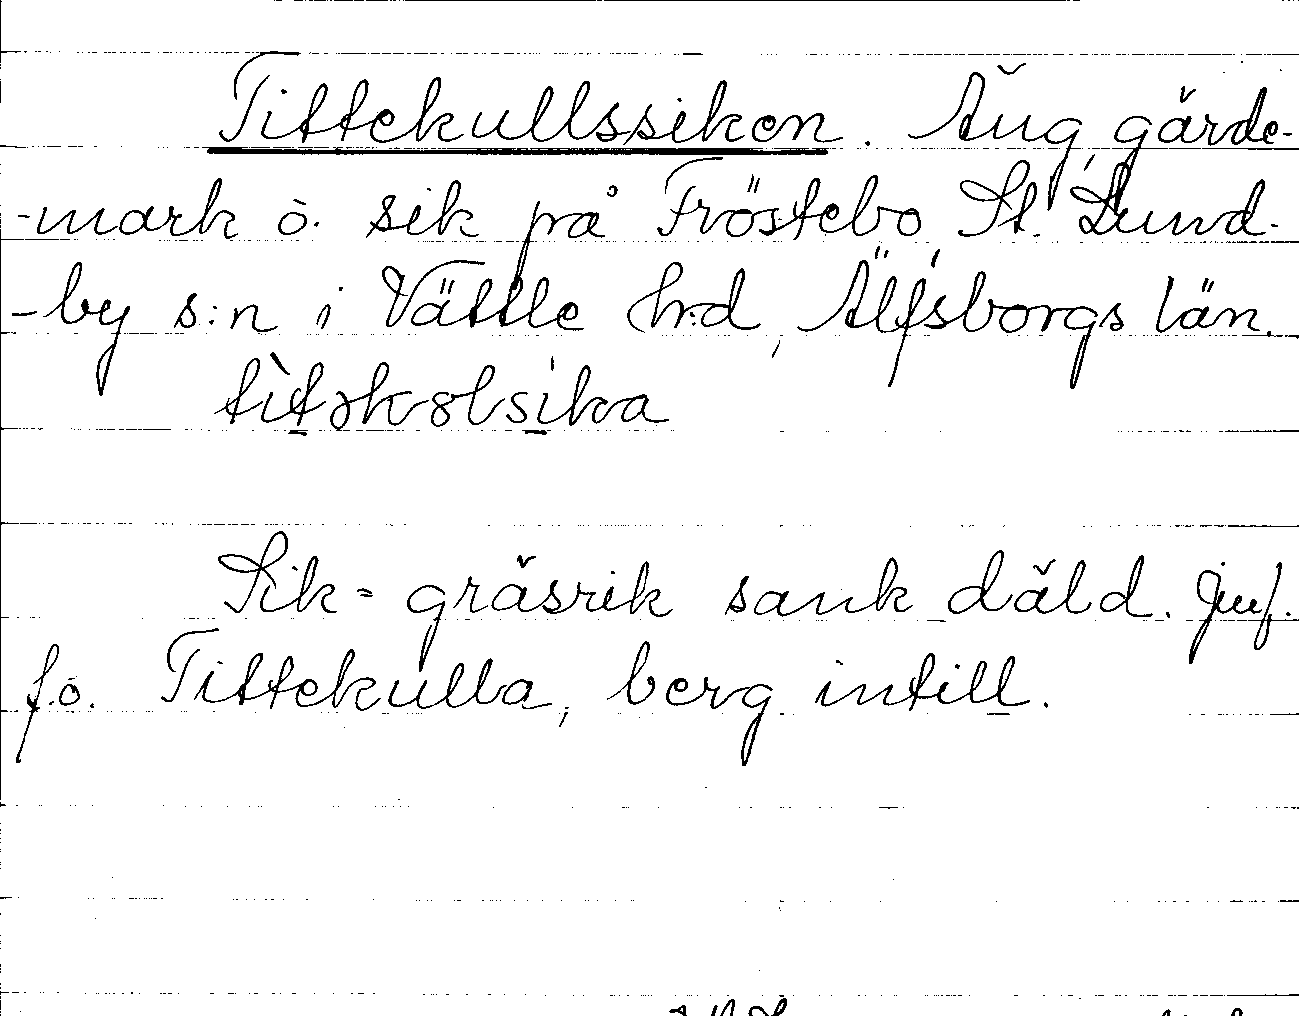 Tittekullssiken. Äng, gärde-
-mark o. sik på Fröstebo, St. Lund-
-by s:n i Vättle hrd, Älfsborgs län.
Sik = gräsrik sank däld. Jmf.
f.ö. Tittekulla, berg intill.